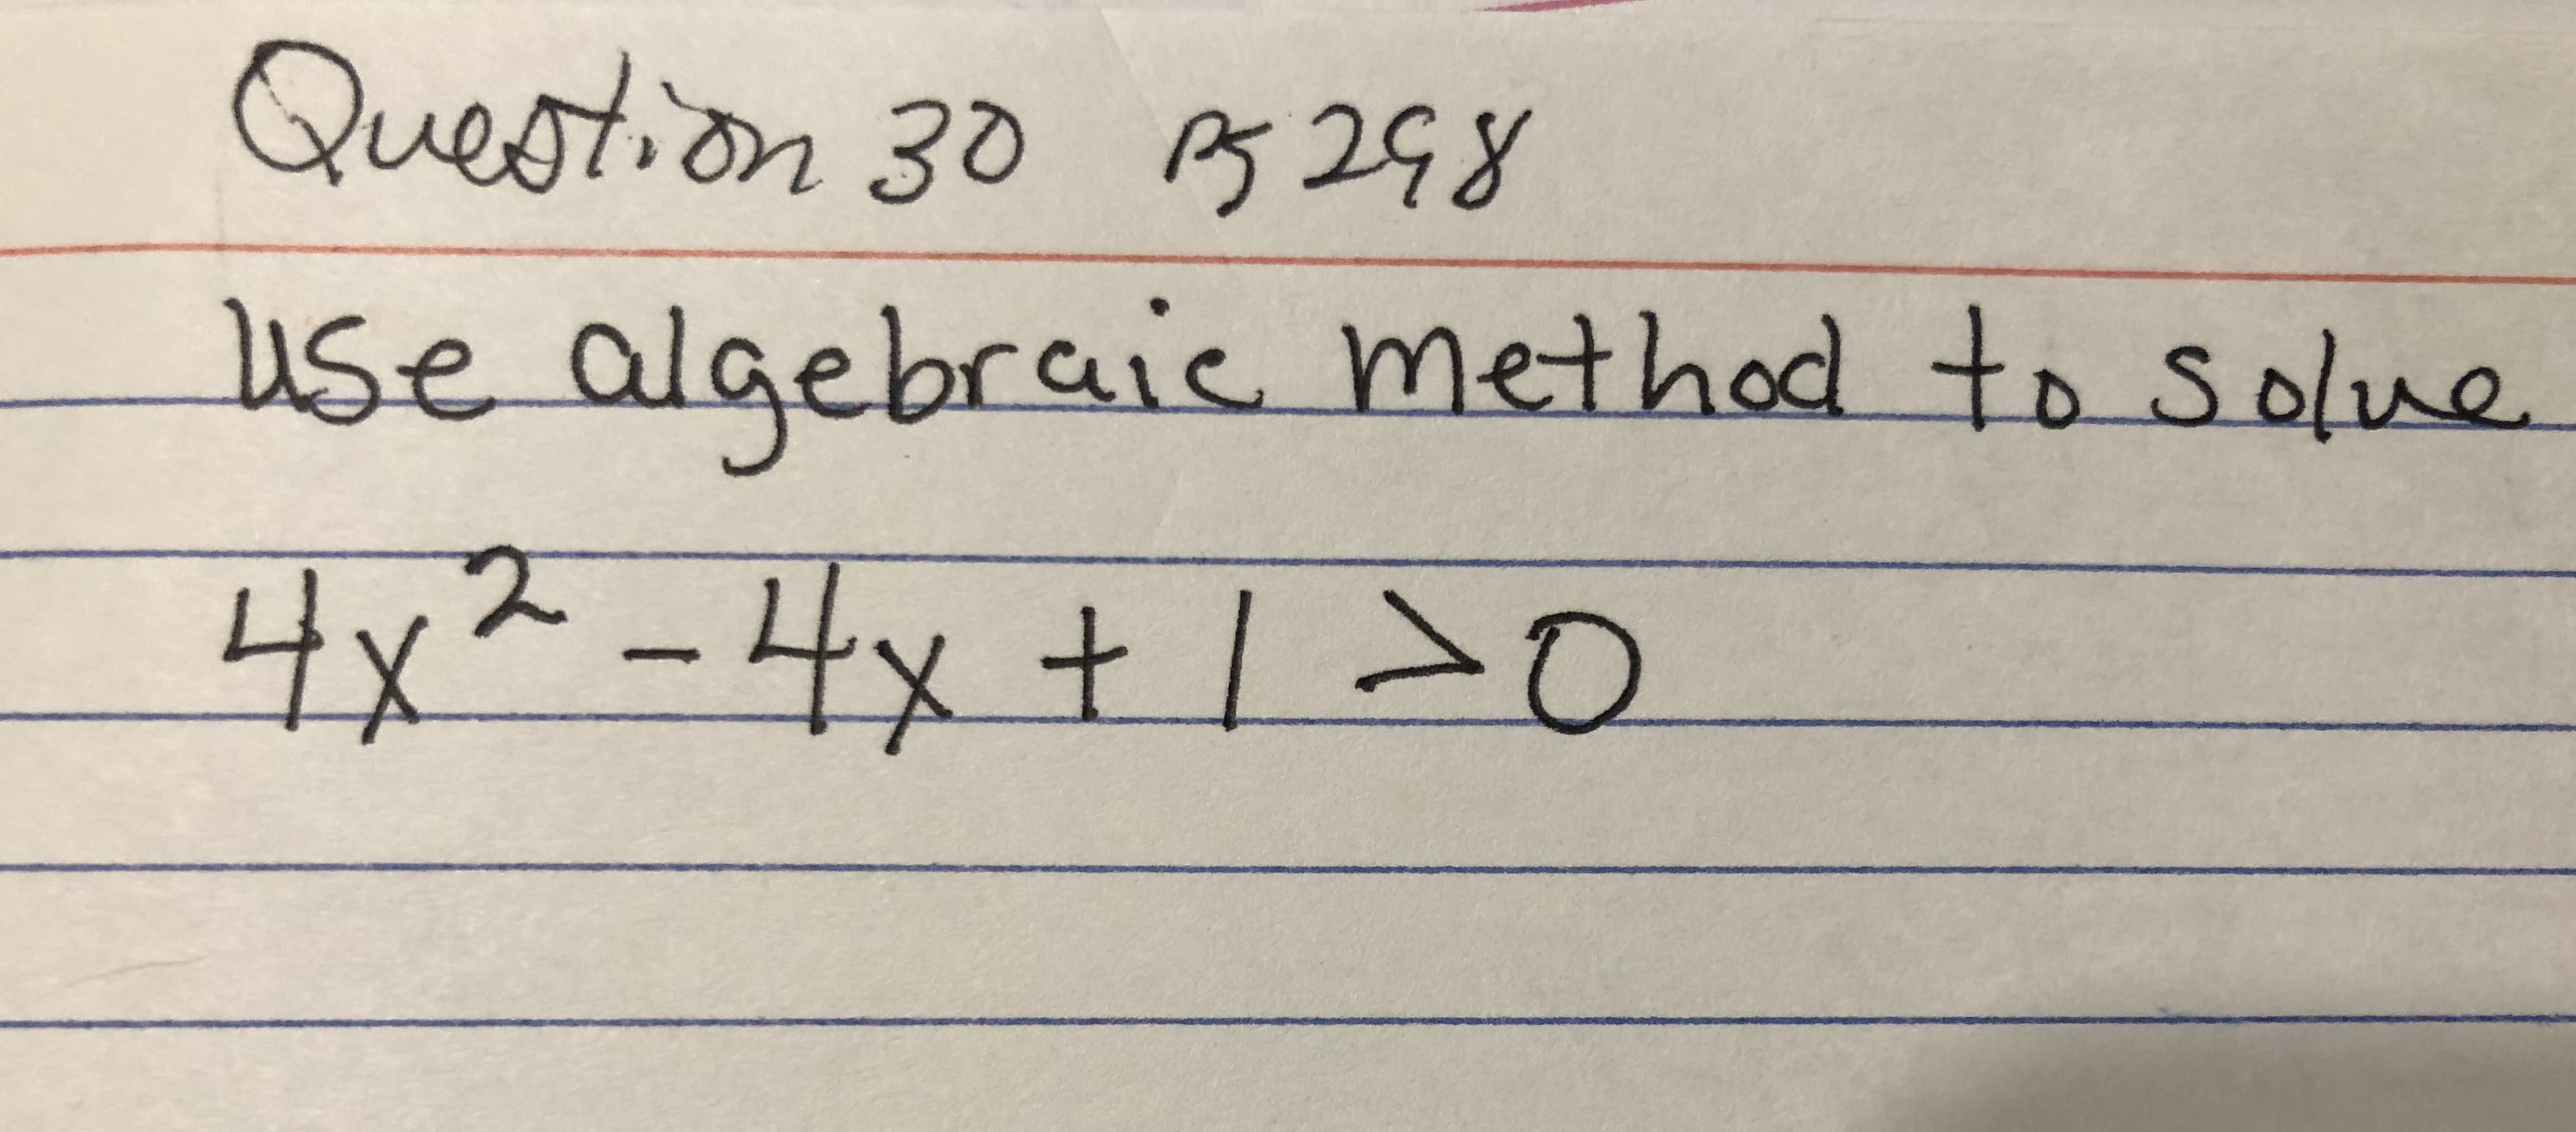 Question 30 Pg 298
use algebraic method to solve
4x² - 4x + 1 > 0